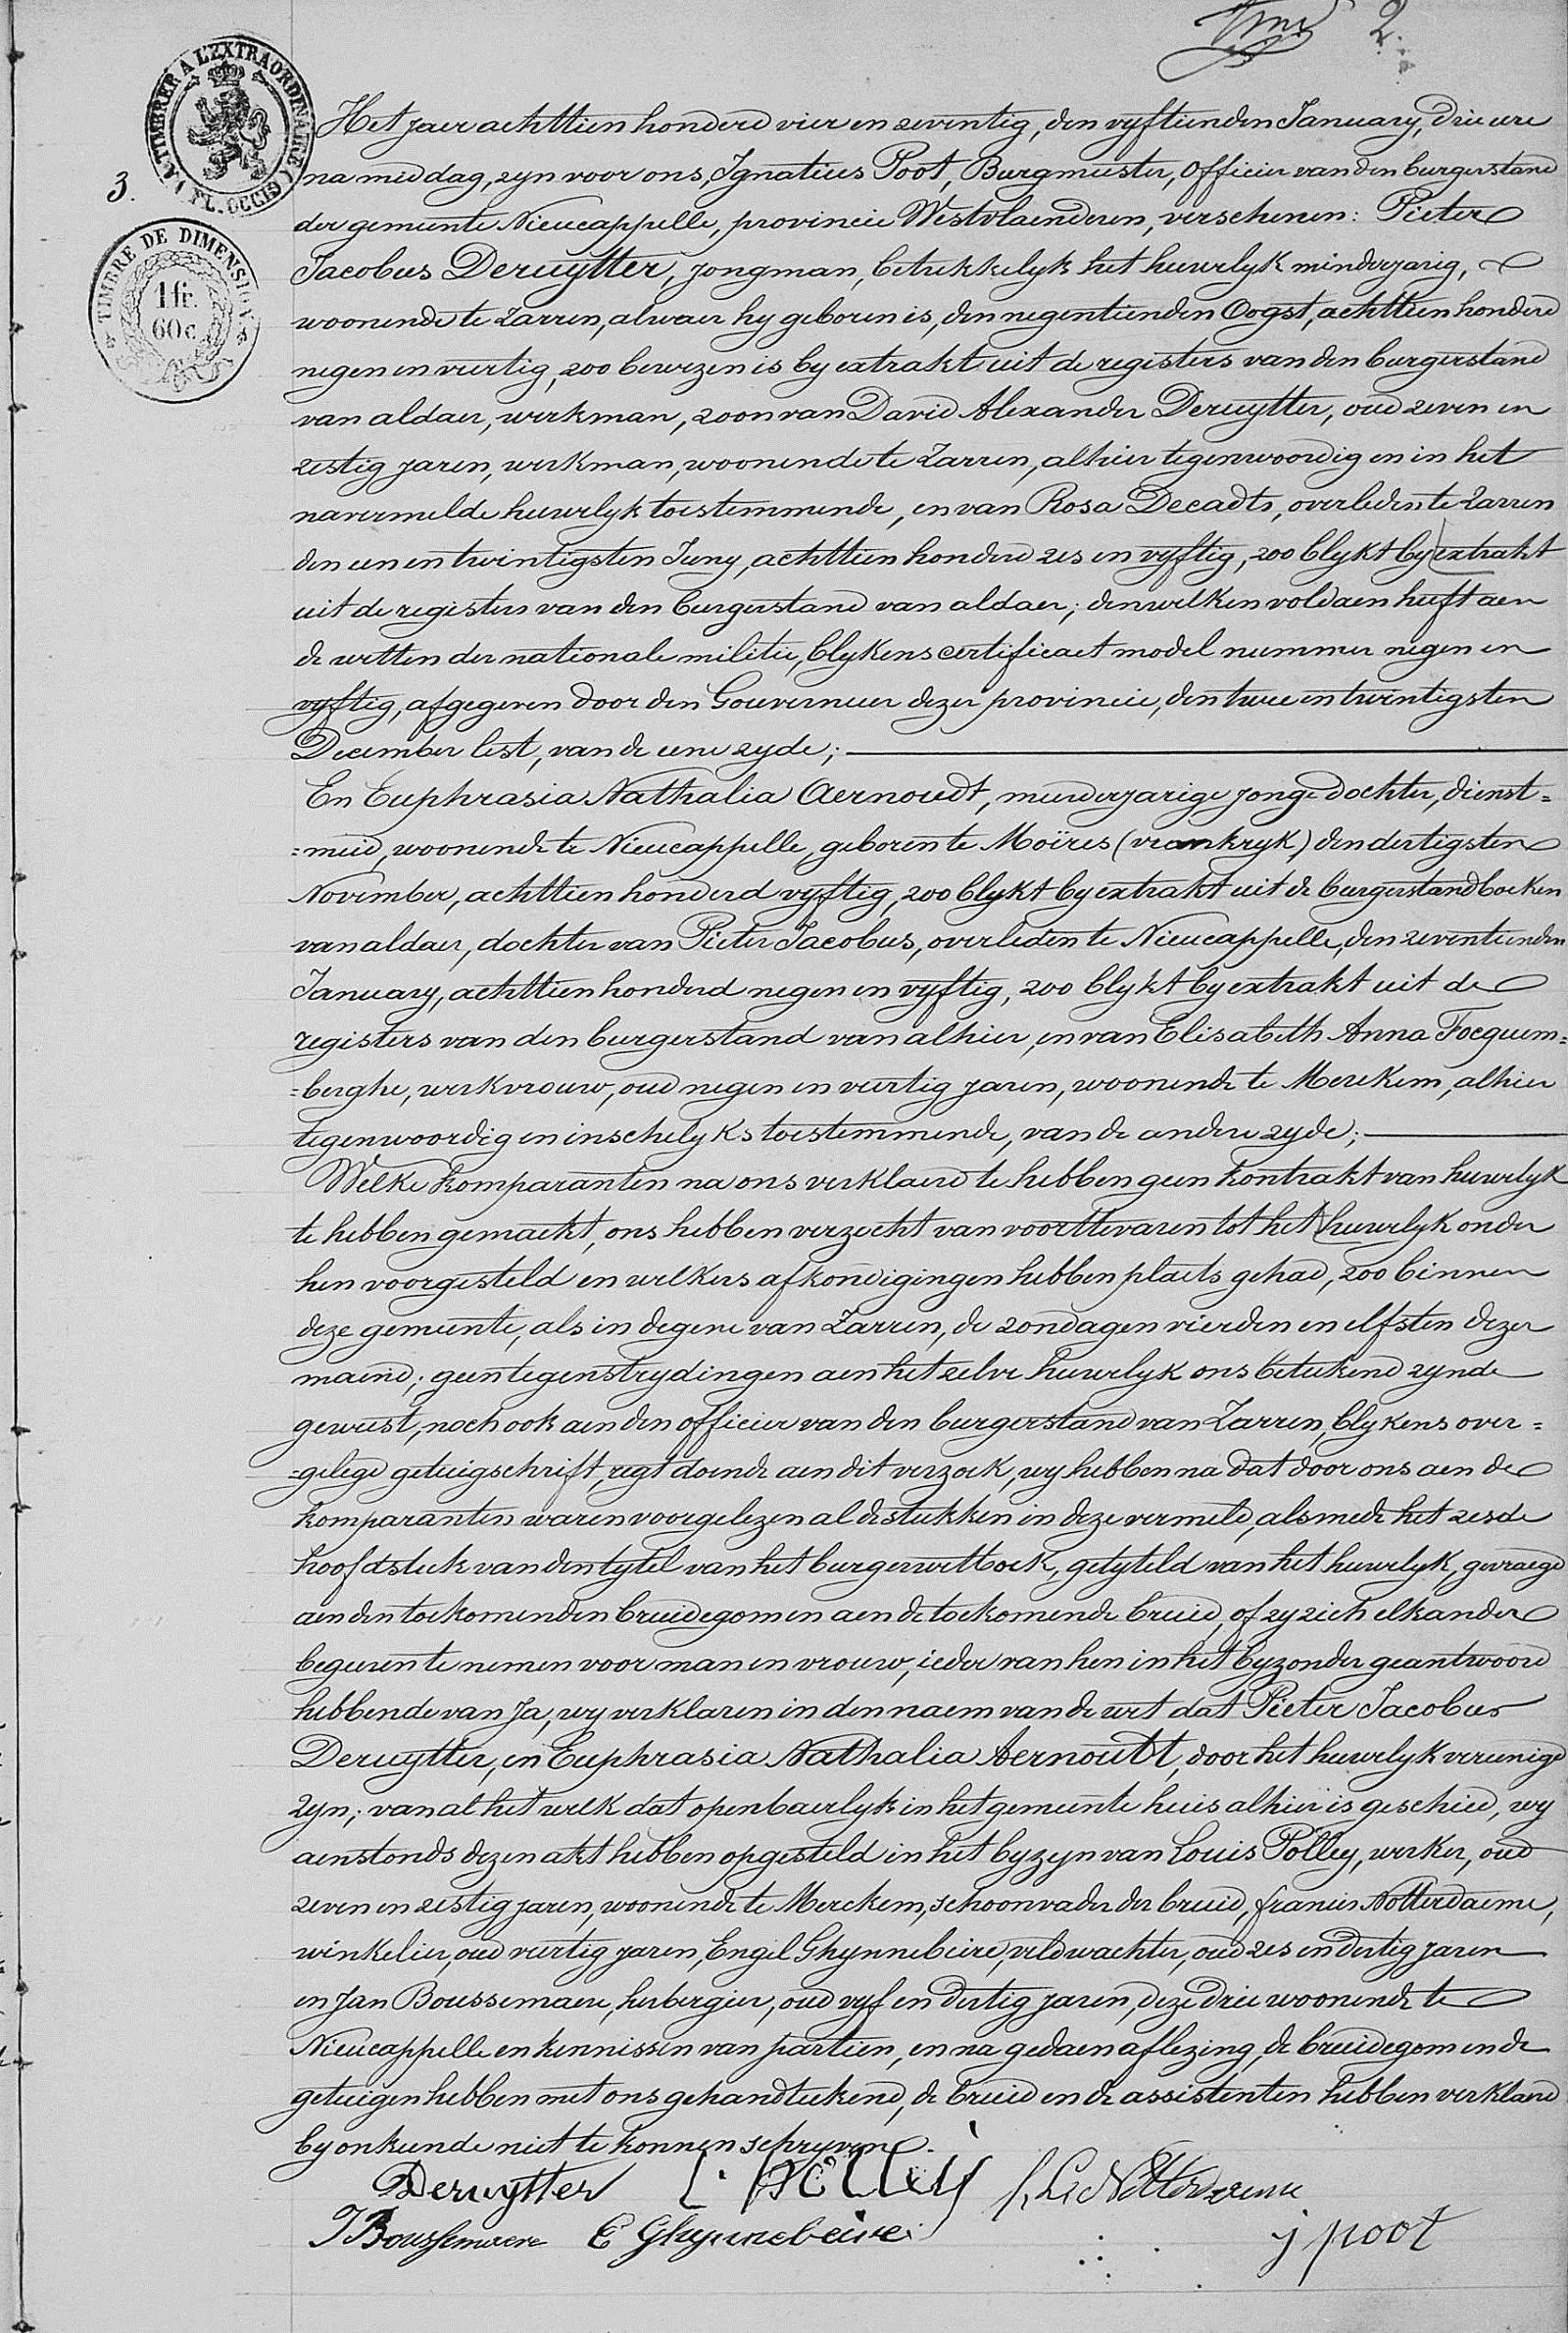 2.
A TIMBRER A L'EXTRAORDINAIRE
(FL. OCCID.)
3.
TIMBRE DE DIMENSION
1 fr.
60 c
Het jaer achttien honderd vier en zeventig, den vyftienden January, drie ure
na middag, zyn voor ons, Ignatius Poot, Burgmeester, Officier van den burgerstand
der gemeente Nieucappelle, provincie Westvlaenderen, verschenen: Pieter
Jacobus Deruytter, jongman, betrekkelyk het huwelyk minderjarig,
woonende te Zarren, alwaer hy geboren is, den negentienden Oogst, achttien honderd
negen en veertig, zoo bewezen is by extrakt uit de registers van den burgerstand
van aldaer, werkman, zoon van David Alexander Deruytter, oud zeven en
zestig jaren, werkman, woonende te Zarren, alhier tegenwoordig en in het
navermelde huwelyk toestemmende, en van Rosa Decadts, overleden te Zarren
den een en twintigsten Juny, achttien honderd zes en vyftig, zoo blykt by extrakt
uit de registers van den burgerstand van aldaer; denwelken voldaen heeft aen
de wetten der nationale militie, blykens certificaet model nummer negen en
vyftig, afgegeven door den Gouverneur dezer provincie, den twee en twintigsten
December lest, van de eene zyde;
En Euphrasia Nathalia Aernoudt, meerderjarige jonge dochter, dienst=
=meid, woonende te Nieucappelle, geboren te Moïres (vrankryk) den dertigsten
November, achttien honderd vyftig, zoo blykt by extrakt uit de burgerstandboeken
van aldaer, dochter van Pieter Jacobus, overleden te Nieucappelle, den zeventienden
January, achttien honderd negen en vyftig, zoo blykt by extrakt uit de
registers van den burgerstand van alhier, en van Elisabeth Anna Focquem=
=berghe, werkvrouw, oud negen en veertig jaren, woonende te Merckem, alhier
tegenwoordig en inschelyks toestemmende, van de andere zyde;
Welke komparanten na ons verklaerd te hebben geen kontrakt van huwelyk
te hebben gemaekt, ons hebben verzocht van voorttevaren tot het huwelyk onder
hen voorgesteld en welkers afkondigingen hebben plaets gehad, zoo binnen
deze gemeente, als in degene van Zarren, de zondagen vierden en elfsten dezer
maend; geen tegenstrydingen aen het zelve huwelyk ons beteekend zynde
geweest, noch ook aen den officier van den burgerstand van Zarren, blykens over=
=gelegd getuigschrift, regt doende aen dit verzoek, wy hebben na dat door ons aen de
komparanten waren voorgelezen al de stukken in deze vermeld, alsmede het zesde
hoofdstuk van den tytel van het burgerwetboek, getyteld van het huwelyk, gevraegd
aen den toekomenden bruidegom en aen de toekomende bruid, of zy zich elkander
begeeren te nemen voor man en vrouw, ieder van hen in het byzonder geantwoord
hebbende van Ja, wy verklaren in den naem van de wet dat Pieter Jacobus
Deruytter, en Euphrasia Nathalia Aernoudt, door het huwelyk vereenigd
zyn; van al het welk dat openbaerlyk in het gemeente huis alhier is geschied, wy
aenstonds dezen akt hebben opgesteld in het byzyn van Louis Polley, werker, oud
zeven en zestig jaren, woonende te Merckem, schoonvader der bruid, francies Notterdaeme,
winkelier, oud veertig jaren, Engel Ghynnebeire, veldwachter, oud zes en dertig jaren
en Jan Boussemaere, herbergier, oud vyf en dertig jaren, deze drie woonende te
Nieucappelle en kennissen van partien, en na gedaen aflezing, de bruidegom en de
getuigen hebben met ons gehandteekend, de bruid en de assistenten hebben verklaerd
by onkunde niet te konnen schryven.
Deruytter L. Polley Notterdaeme
J Boussemaere E Ghynnebeire j poot